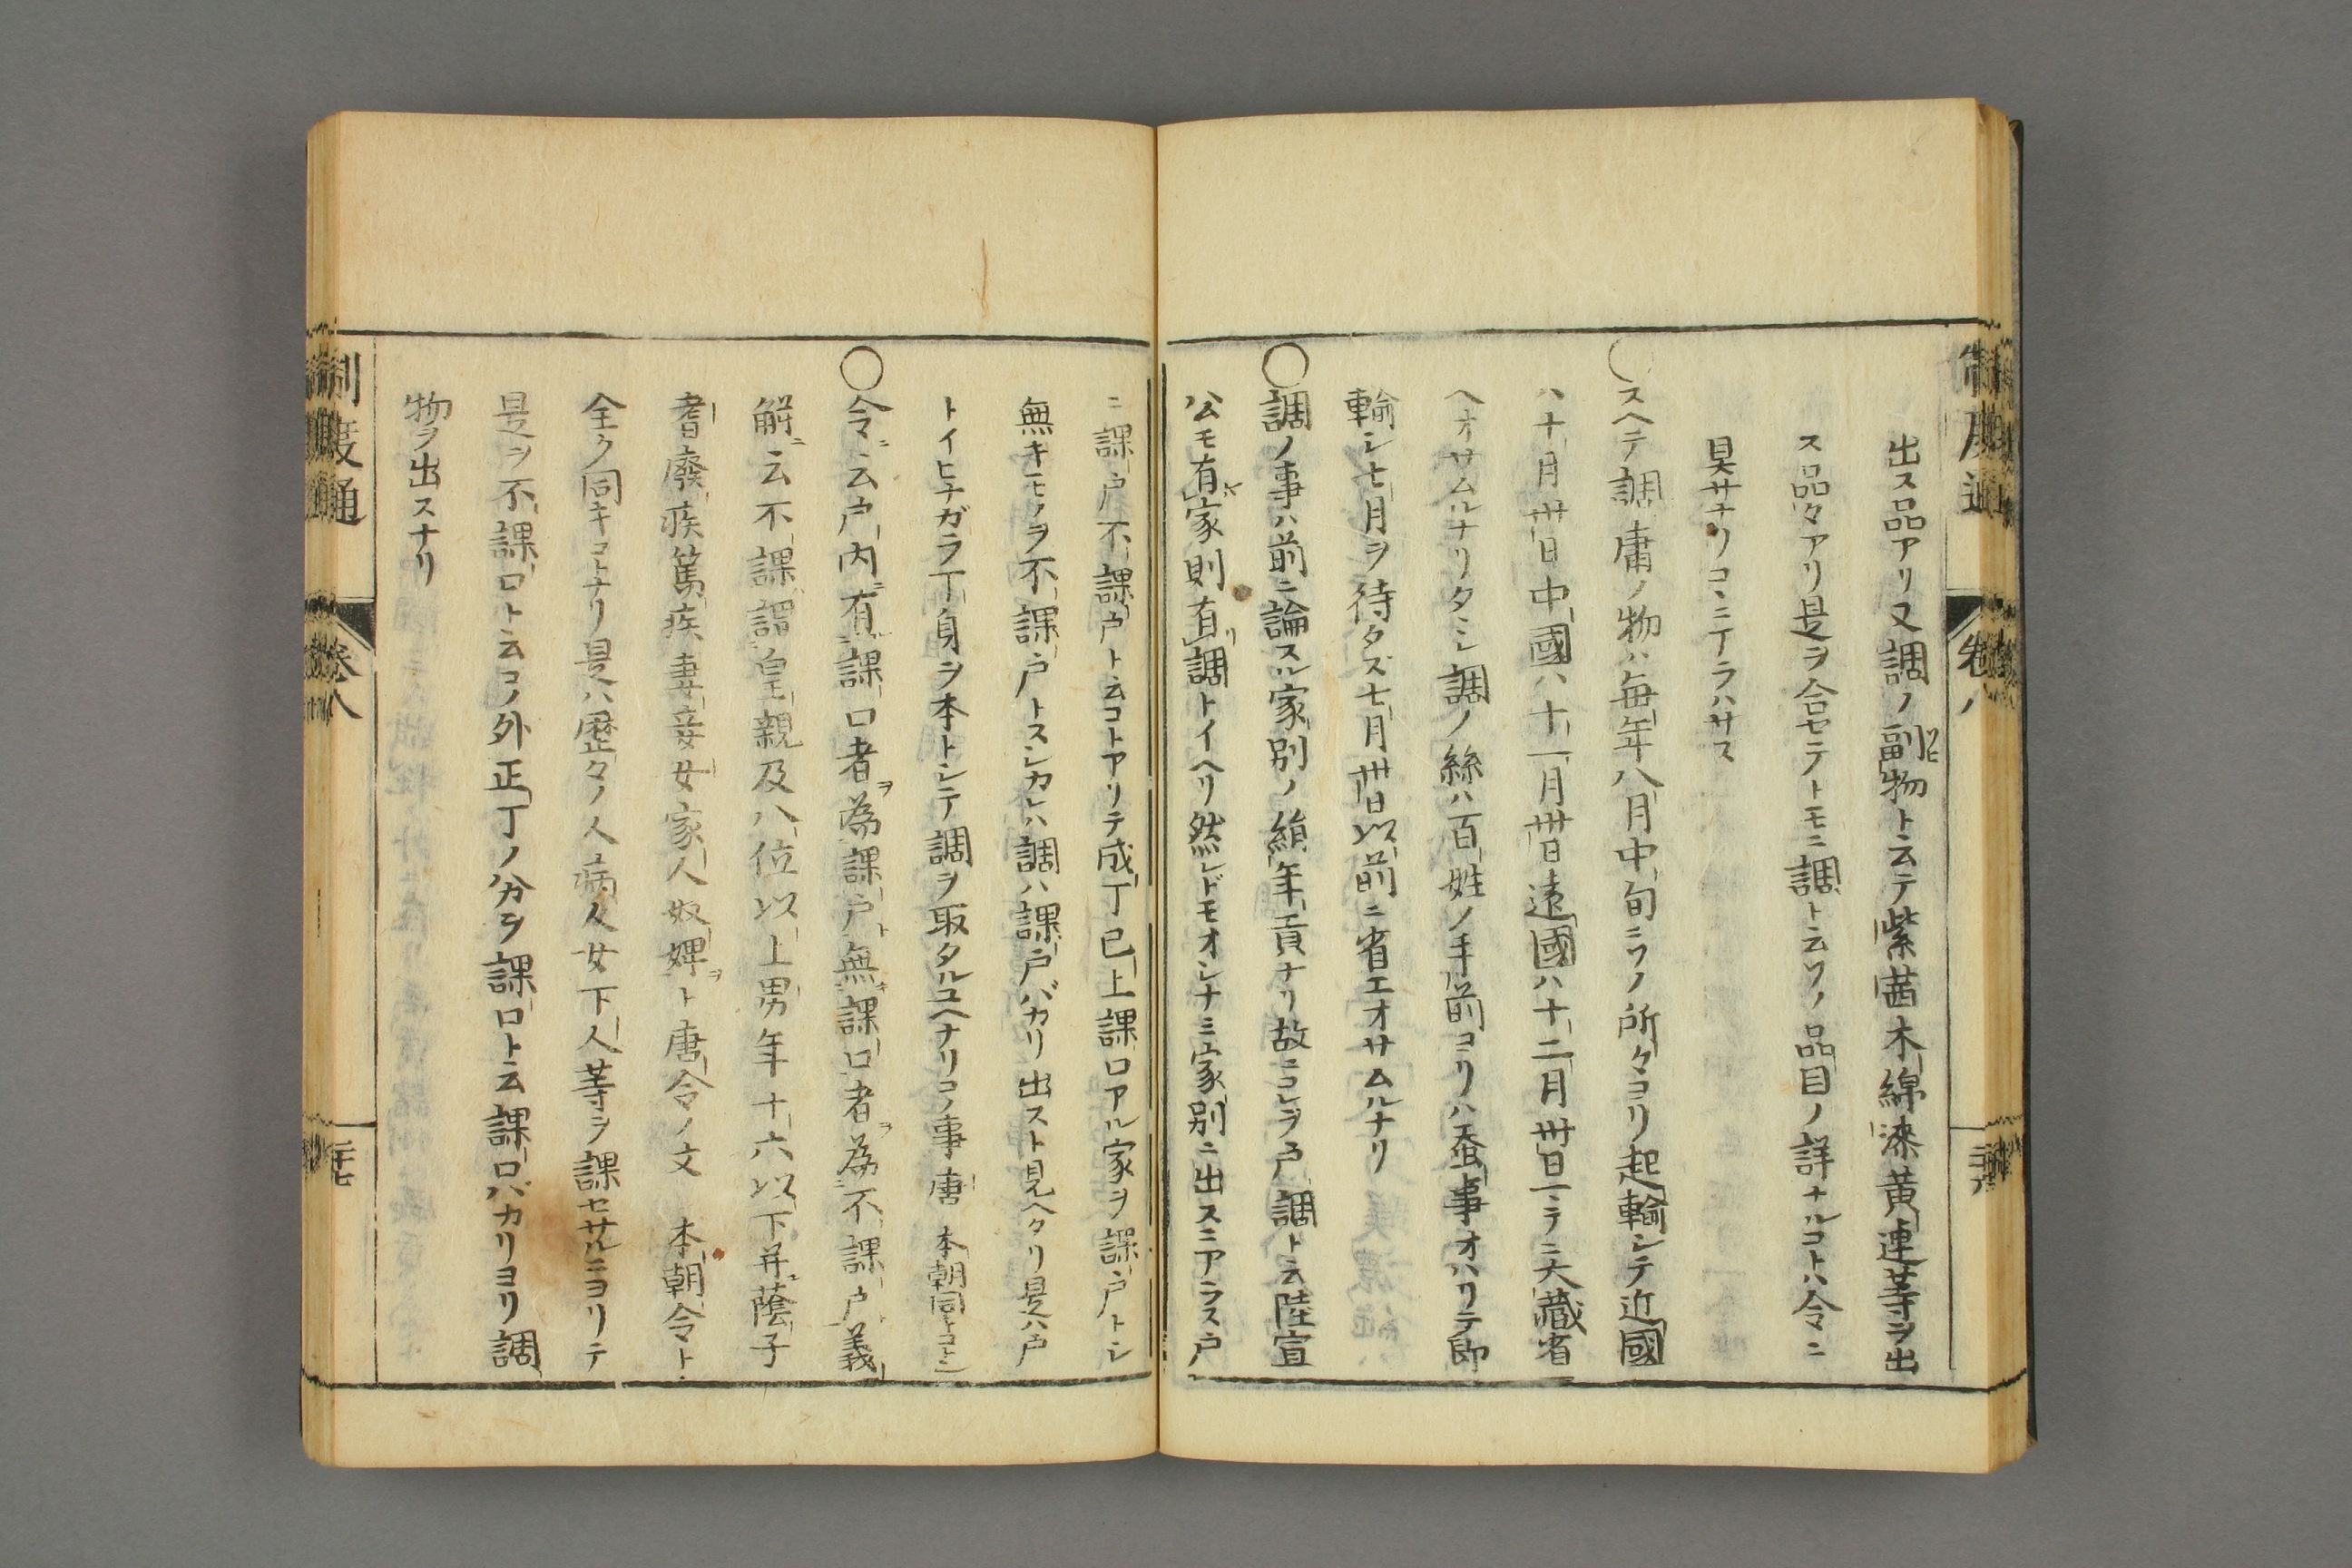 出ス品アリ又調ノ副物ト云テ紫茜木綿漆黄連等ヲ出
ス品々アリ是ヲ合セテトモニ調ト云ソノ品目ノ詳ナルコトハ令ニ
具サナリコヽニアラハサス
○スヘテ調庸ノ物ハ毎年八月中旬ニソノ所々ヨリ起輸シテ近國
ハ十月卅日中國ハ十一月卅日遠國ハ十二月卅日ニテニ大藏省
ヘオサムルナリタヽシ調ノ絲ハ百姓ノ手前ヨリハ蚕事オハリテ即
輸シ七月ヲ待タズ七月卅日以前ニ省エオサムルナリ
○調ノ事ハ前ニ論スル家別ノ絹年貢ナリ故ニコレヲ戸調ト云陸宣
公モ有家則有調トイヘリ然レドモオシナミ家別ニ出スニアラス戸
ニ課戸不課戸ト云コトアリテ成丁已上課口アル家ヲ課戸トシ
無キモノヲ不課戸トスシカレハ調ハ課戸バカリ出スト見ヘタリ是ハ戸
トイヒナガラ丁身ヲ本トシテ調ヲ取タルユヘナリコノ事唐 本朝同シコトシ
○令ニ云戸内ニ有課口者ヲ為課戸ト無課口者ヲ為不課戸義
解ニ云不課謂皇親及八位以上男年十六以下并蔭子
耆廢疾篤疾妻妾女家人奴婢ヲト唐令ノ文 本朝令ト
全ク同キコトナリ是ハ歴々ノ人病人女下人等ヲ課セサルニヨリテ
是ヲ不課口ト云コノ外正丁ノ分ヲ課口ト云課口バカリヨリ調
物ヲ出スナリ
制度通
卷八
二十七